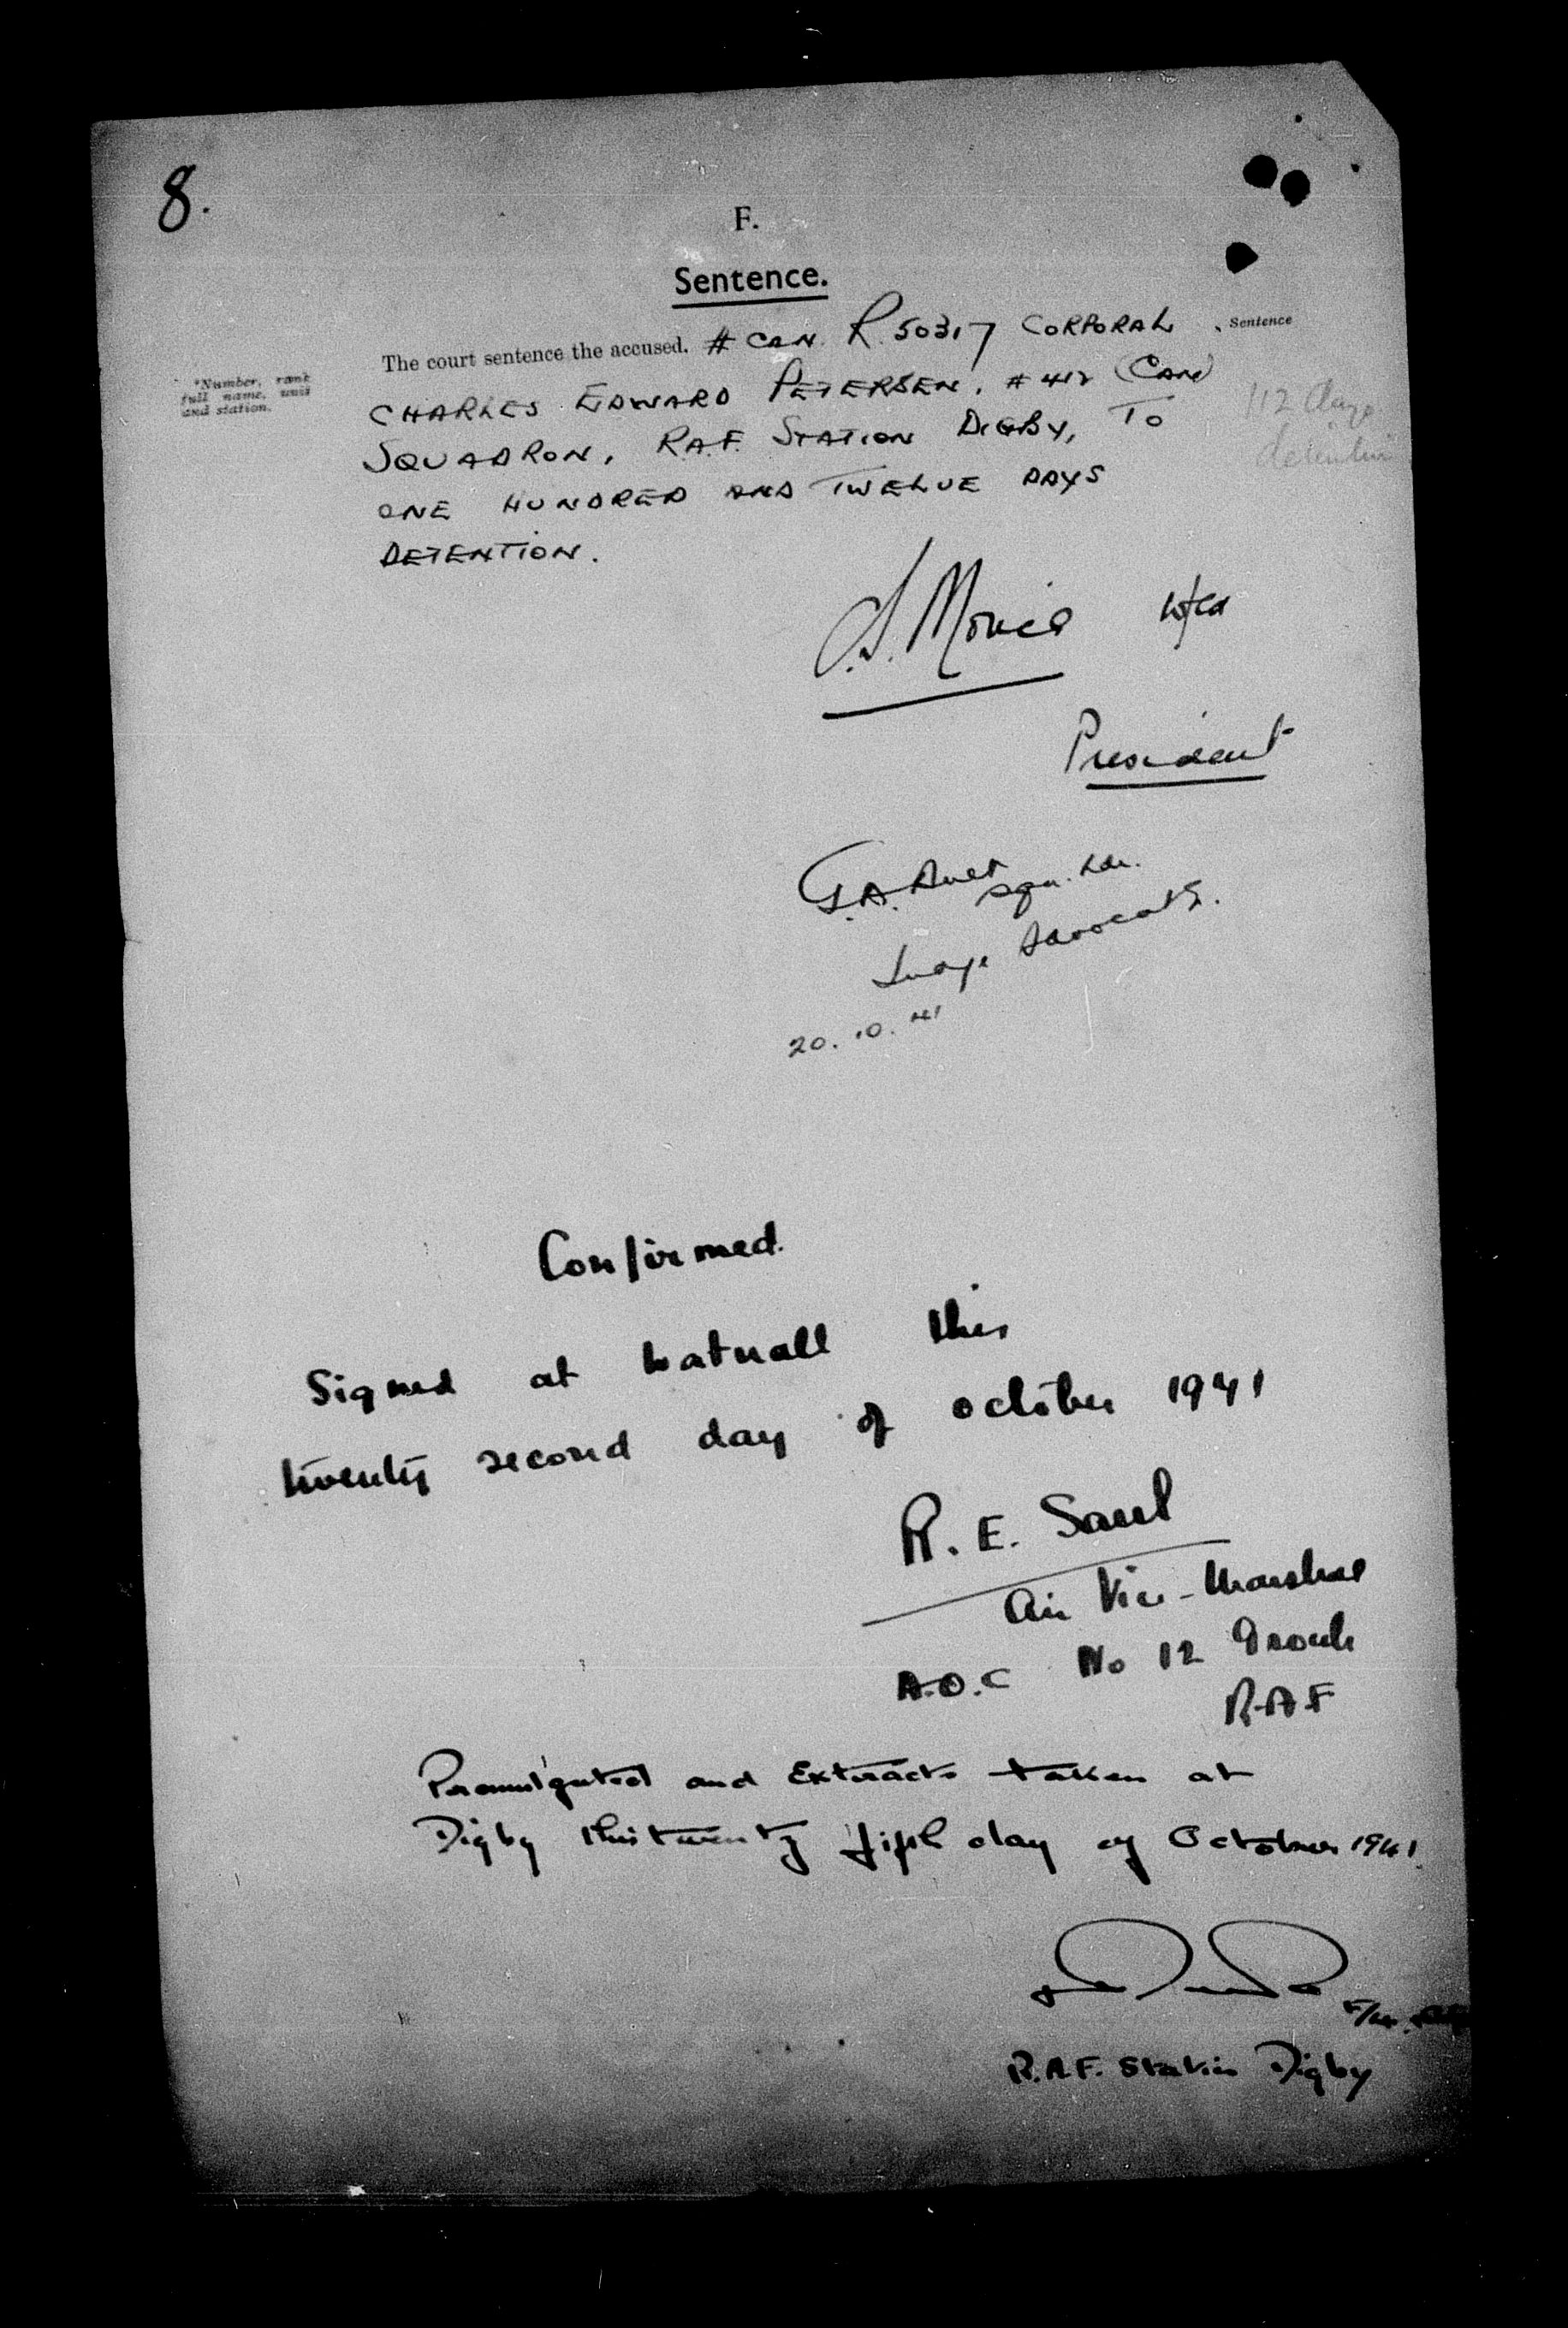 8.
F.
Sentence.
The court sentence the accused. # CAN. R.50317 CORPORAL . Sentence
*Number, rank
full name, unit
and station.
CHARLES EDWARD PETERSEN. #412 (CAN)
SQUADRON, R.A.F. STATION DIGBY, TO
112 days
detention
ONE HUNDRED AND TWELVE DAYS
DETENTION.
W/Cdr
President
Sqn. Ldr.
Judge Advocate.
20.10.41
Confirmed.
Signed at Watnall this
twenty second day of October 1941
R. E. Saul
Air Vice-Marshal
A.O.C No 12 Group
R.A.F
Promulgated and Extracts taken at
Digby this twenty fifth day of October 1941.
R.A.F. Station Digby